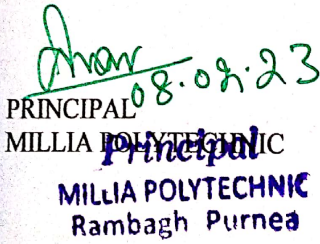 08.02.23
PRINCIPAL
MILLIA POLYTECHNIC
Principal
MILLIA POLYTECHNIC
Rambagh Purnea